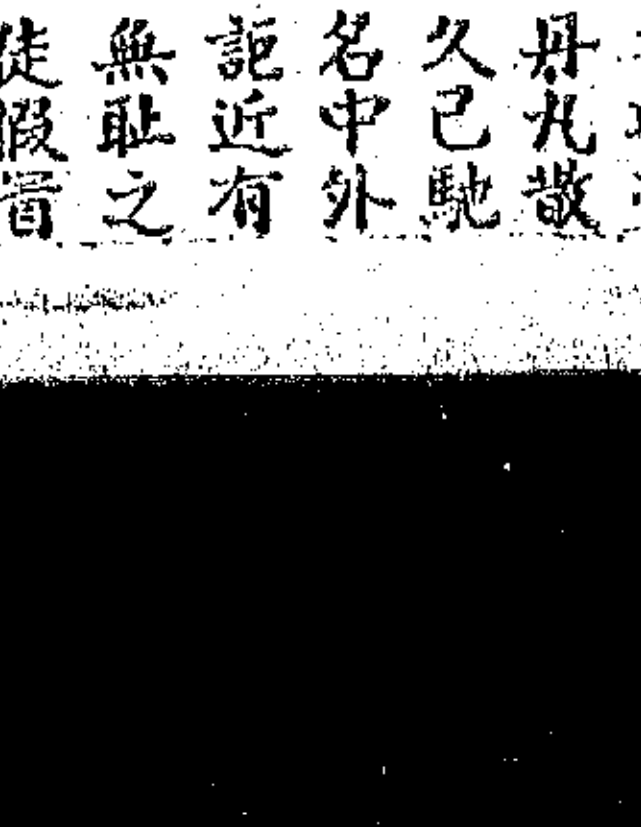 丹丸散
久已馳
名中外
詎近有
無耻之
徒假冒